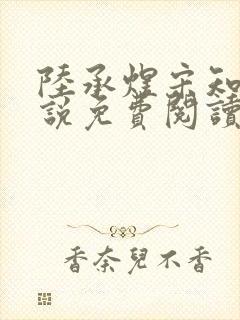 陸承煜宋知
說免費閱讀
香奈兒不香